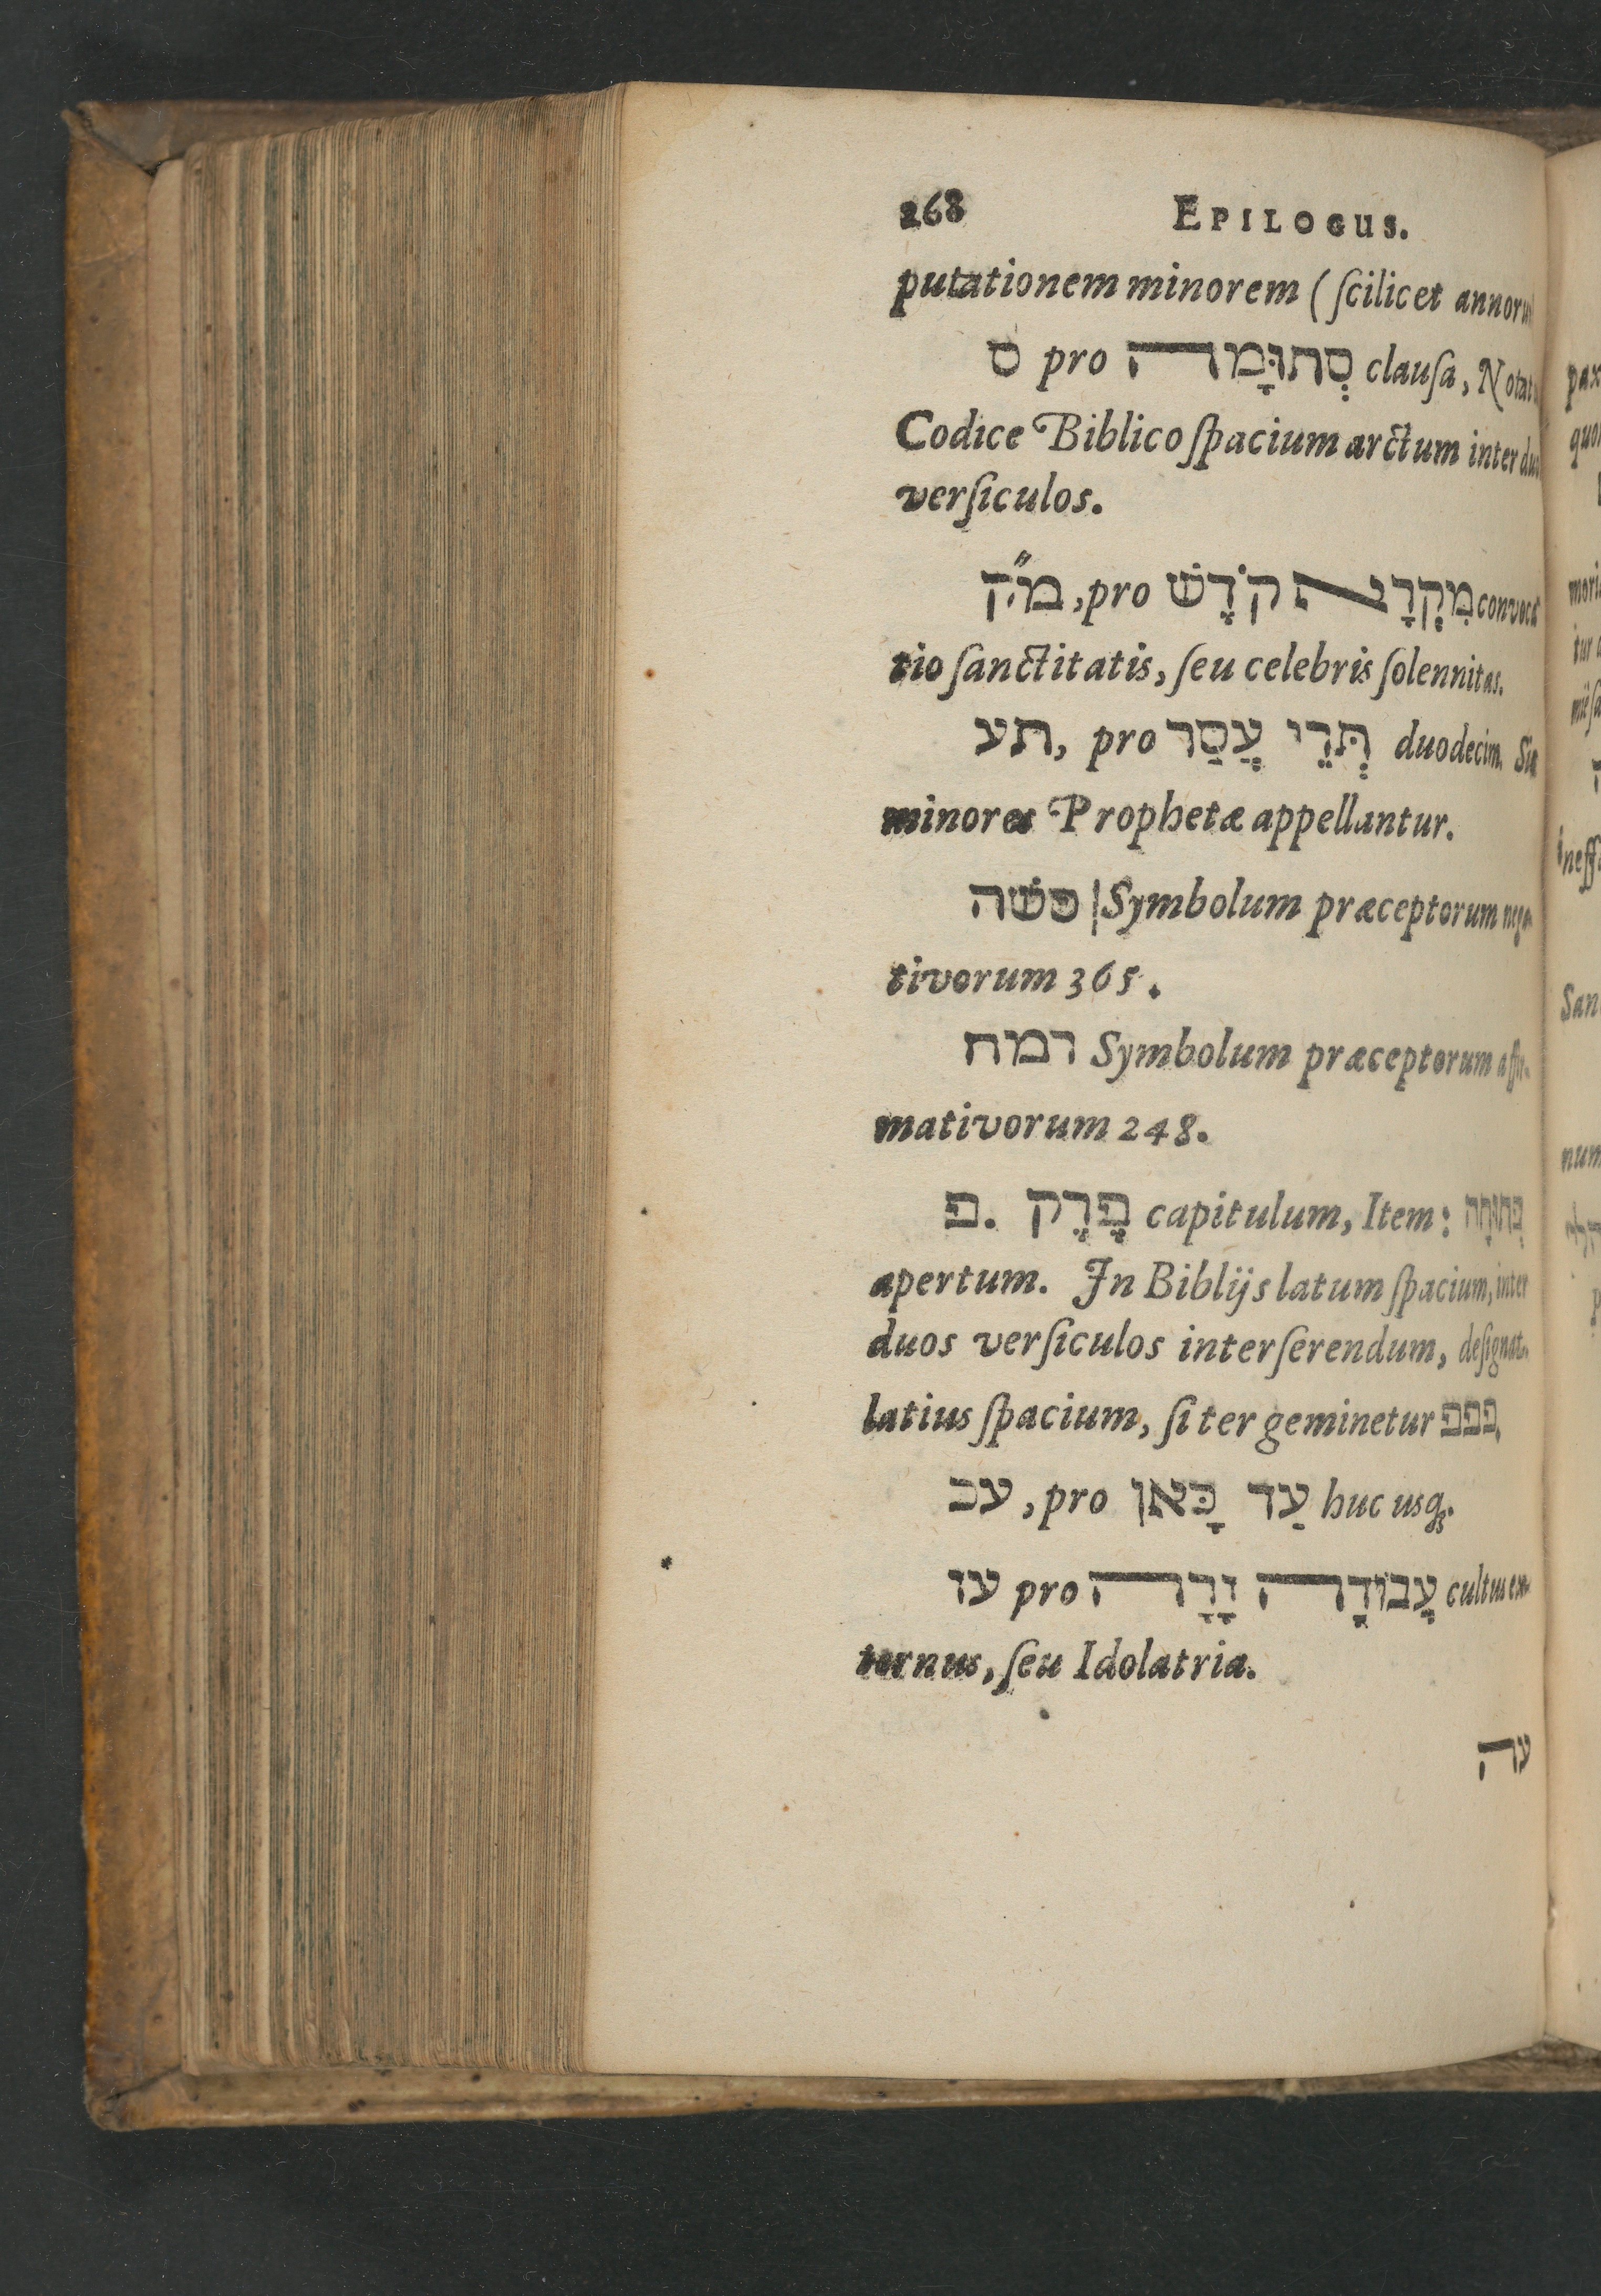 268 EPILOGUS.
putationem minorem (ſcilicet
ס pro סְתוּמָה clauſa,
Codice Biblico ſpacium arctum inter
verſiculos.
מ״ק, pro מִקְרָא קֹדָשׁ convoca
tio ſanctitatis, ſeu celebris ſolennitas.
תע, pro תְּרֵי עֲסַר duodecim. Sic
minores Prophetæ appellantur.
פשה Symbolum præceptorum nega-
tivorum 365.
רמח Symbolum præceptorum affir-
mativorum 248.
פ. פֶּרֶק capitulum, Item: פְּתוּחָה
apertum. In Biblijs latum ſpacium, inter
duos verſiculos interſerendum, deſignat.
latius ſpacium, ſi ter geminetur פפפ.
עכ, pro עַד כָּאן huc uſq̃.
עז pro עֲבוֹדָה זָרָה cultus ex-
ternus, ſeu Idolatria.
עה
pax
mori
Sanc
num